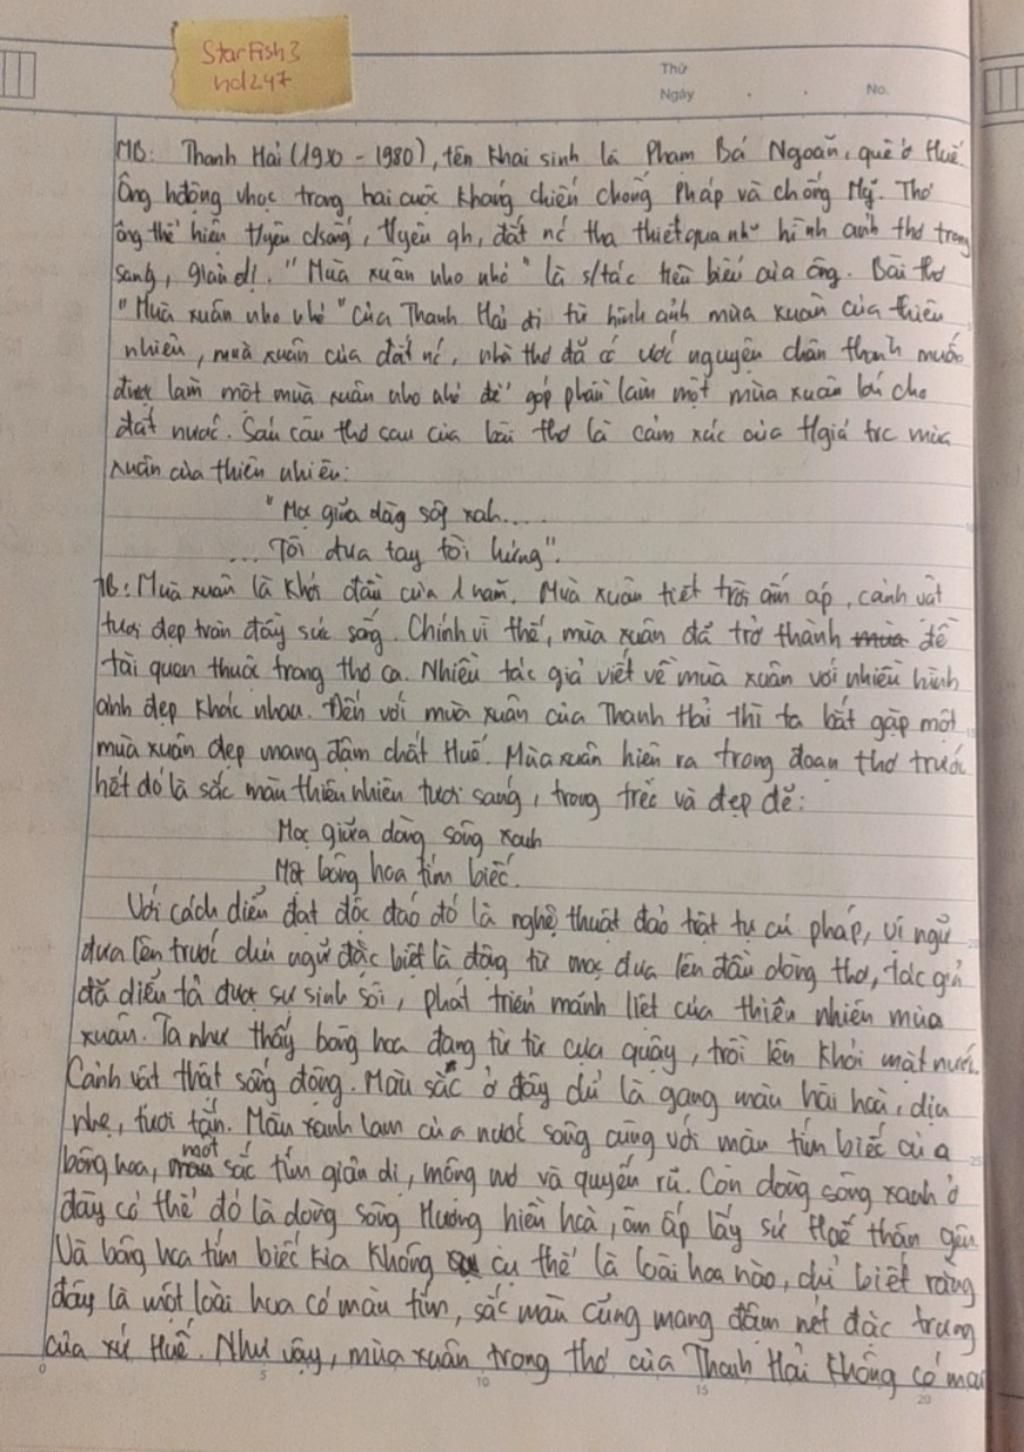 StarFish3
hd247
Thứ
Ngày
No.
MB: Thanh Hải (1930 - 1980), tên khai sinh là Phạm Bá Ngoãn, quê ở Huế.
Ông hđộng vhọc trong hai cuộc kháng chiến chống Pháp và chống Mỹ. Thơ
ông thể hiện t/yêu c/sống, t/yêu qh, đất nc tha thiết qua như hình ảnh thơ trong
sáng, giản dị. "Mùa xuân nho nhỏ" là s/tác tiêu biểu của ông. Bài thơ
"Mùa xuân nho nhỏ" của Thanh Hải đi từ hình ảnh mùa xuân của thiên
nhiên, mùa xuân của đất nc, nhà thơ đã có ước nguyện chân thành muốn
được làm một mùa xuân nho nhỏ để góp phần làm một mùa xuân lớn cho
đất nước. Sáu câu thơ sau của bài thơ là cảm xúc của t/giả trc mùa
xuân của thiên nhiên:
"Mọc giữa dòng sông xanh....
... Tôi đưa tay tôi hứng".
TB: Mùa xuân là khởi đầu của 1 năm. Mùa xuân tiết trời ấm áp, cảnh vật
tươi đẹp tràn đầy sức sống. Chính vì thế, mùa xuân đã trở thành đề
tài quen thuộc trong thơ ca. Nhiều tác giả viết về mùa xuân với nhiều hình
ảnh đẹp khác nhau. Đến với mùa xuân của Thanh Hải thì ta bắt gặp một
mùa xuân đẹp mang đậm chất Huế. Mùa xuân hiện ra trong đoạn thơ trước
hết đó là sắc màu thiên nhiên tươi sáng, trong trẻo và đẹp đẽ:
Mọc giữa dòng sông xanh
Một bông hoa tím biếc.
Với cách diễn đạt độc đáo đó là nghệ thuật đảo trật tự cú pháp, vị ngữ
đưa lên trước chủ ngữ đặc biệt là động từ mọc đưa lên đầu dòng thơ, tác giả
đã diễn tả được sự sinh sôi, phát triển mãnh liệt của thiên nhiên mùa
xuân. Ta như thấy bông hoa đang từ từ cựa quậy, trồi lên khỏi mặt nước.
Cảnh vật thật sống động. Màu sắc ở đây dù là gang màu hài hoà, dịu
nhẹ, tươi tắn. Màu xanh lam của nước sông cùng với màu tím biếc của
bông hoa, một sắc tím giản dị, mộng mơ và quyến rũ. Còn dòng sông xanh ở
đây có thể đó là dòng sông Hương hiền hoà, ôm ấp lấy sứ Huế thân yêu
Và bông hoa tím biếc kia không cụ thể là loài hoa nào, chỉ biết rằng
đây là một loài hoa có màu tím, sắc màu cũng mang đậm nét đặc trưng
của xứ Huế. Như vậy, mùa xuân trong thơ của Thanh Hải không có mai
0 5 10 15 20